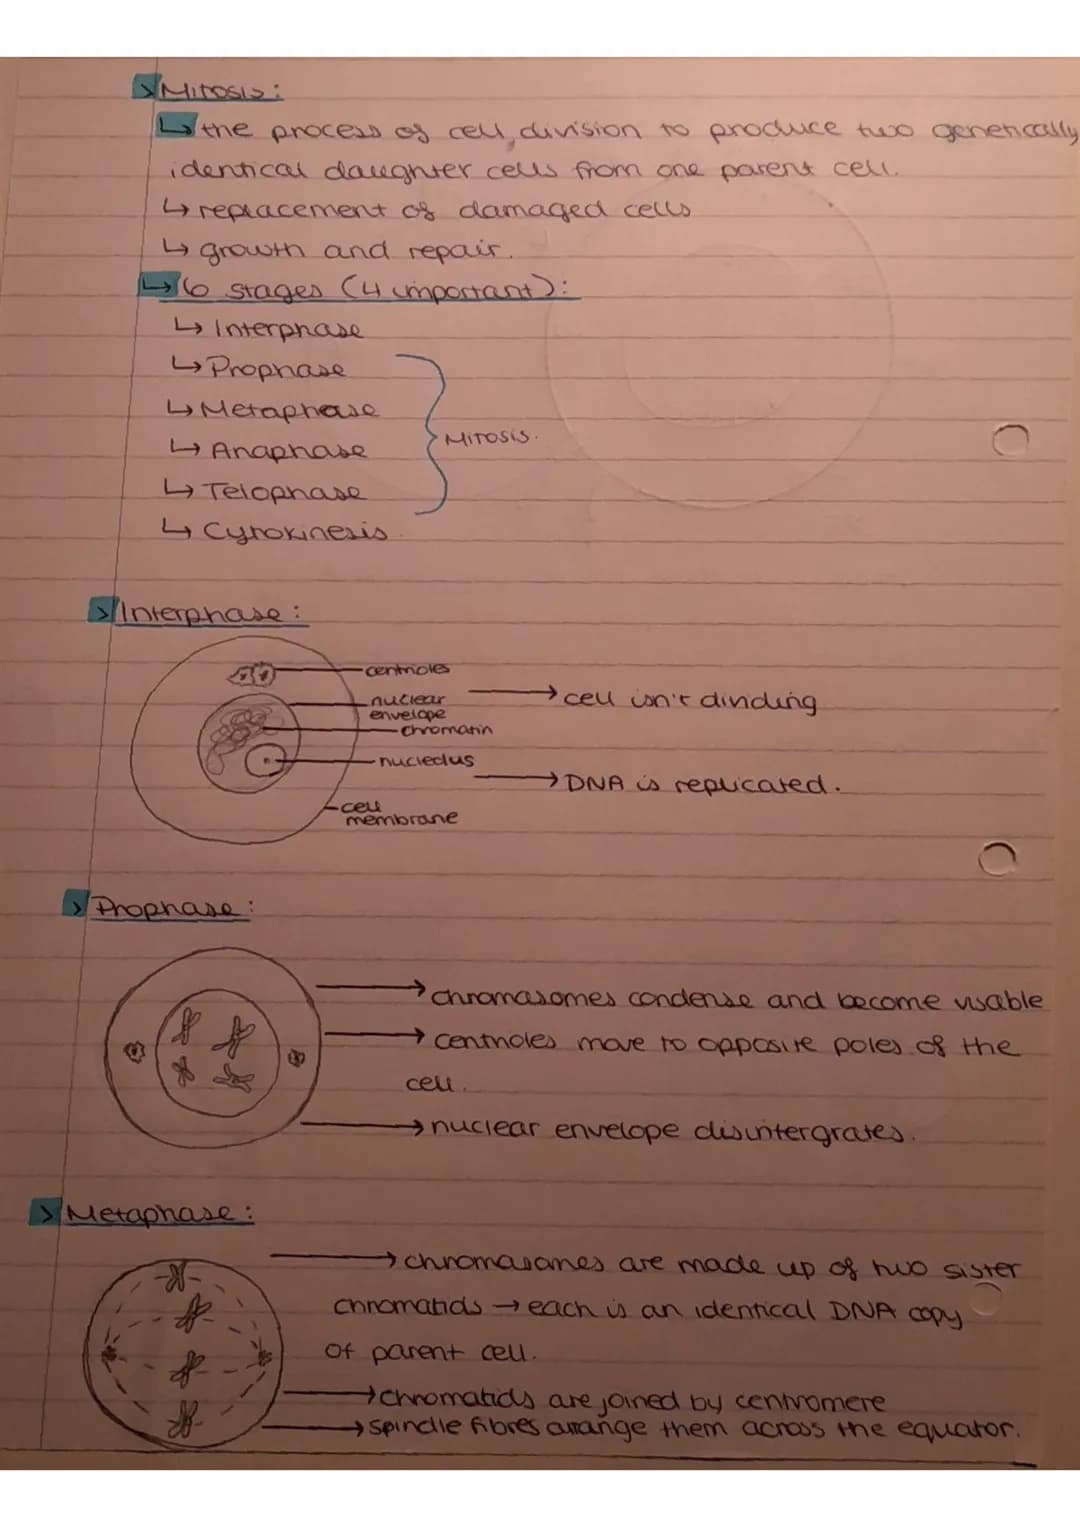 > Mitosis:
↳ the process of cell division to produce two genetically
identical daughter cells from one parent cell.
↳ replacement of damaged cells
↳ growth and repair.
↳ 6 stages (4 important):
↳ Interphase
↳ Prophase
↳ Metaphase
↳ Anaphase
Mitosis.
↳ Telophase
↳ Cytokinesis.
> Interphase:
centrioles
nuclear
envelope
chromatin
nucleolus
cell
membrane
→ cell isn't dividing
→ DNA is replicated.
> Prophase:
→ chromasomes condense and become visable
→ centrioles move to opposite poles of the
cell.
→ nuclear envelope disintergrates.
> Metaphase:
→ chromasomes are made up of two sister
chromatids → each is an identical DNA copy
of parent cell.
→ chromatids are joined by centromere
→ spindle fibres arrange them across the equator.